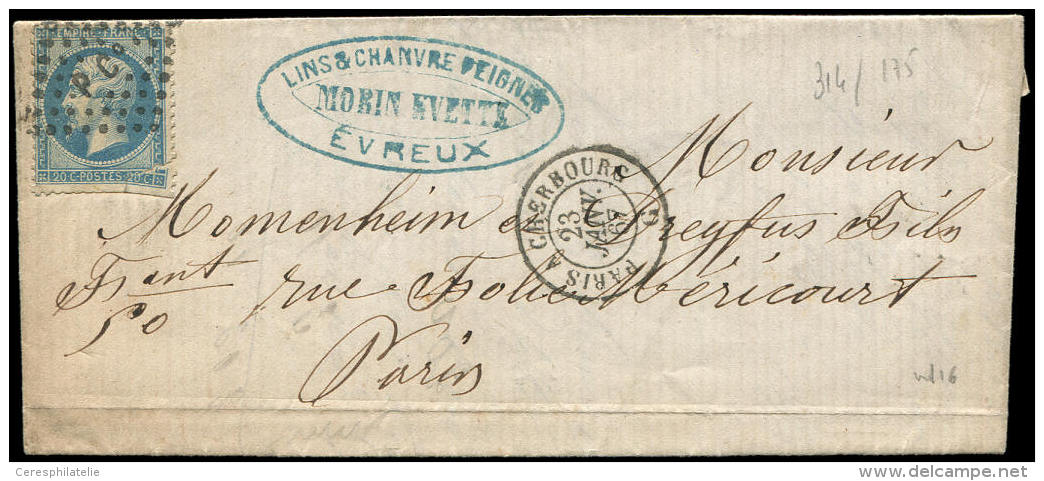 EMPIRE FRANC
P.C.
20 C·POSTES·20 C
LINS & CHANVRE PEIGNES
MORIN EVETTE
ÉVREUX
314/175
PARIS A CHERBOURG
23
JANV.
67
Monsieur
Momenheim et Dreyfus Fils
rue Folie Méricourt
50
Paris
Ceresphilatelie
delcampe.net